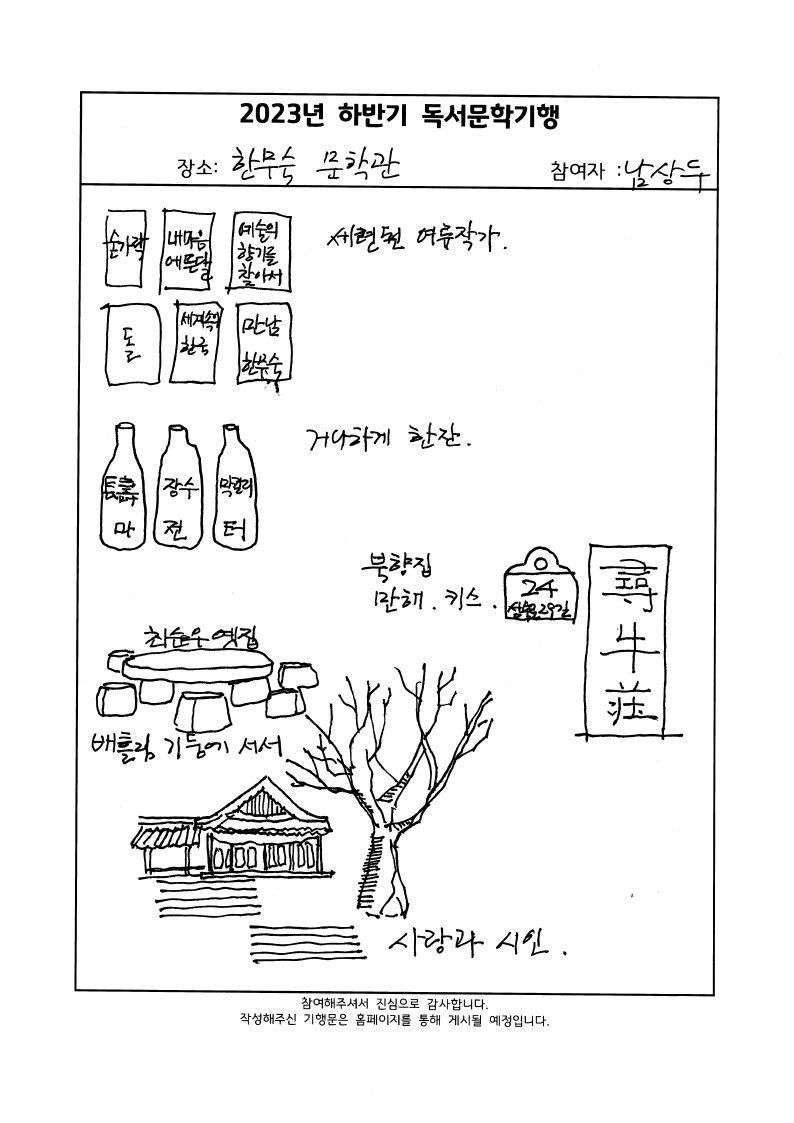 2023년 하반기 독서문학기행
장소: 한무숙 문학관
참여자 : 남상두
숟가락
내마음
에 뜬달
예술의
향기를
찾아서
세련된 여류작가.
돌
세계속의
한국
만남
한무숙
거나하게 한잔.
長壽
마
장수
전
막걸리
터
북향집
만해. 키스.
24
尋
牛
莊
최순우 옛집
배흘림 기둥에 서서
사랑과 시인.
참여해주셔서 진심으로 감사합니다.
작성해주신 기행문은 홈페이지를 통해 게시될 예정입니다.